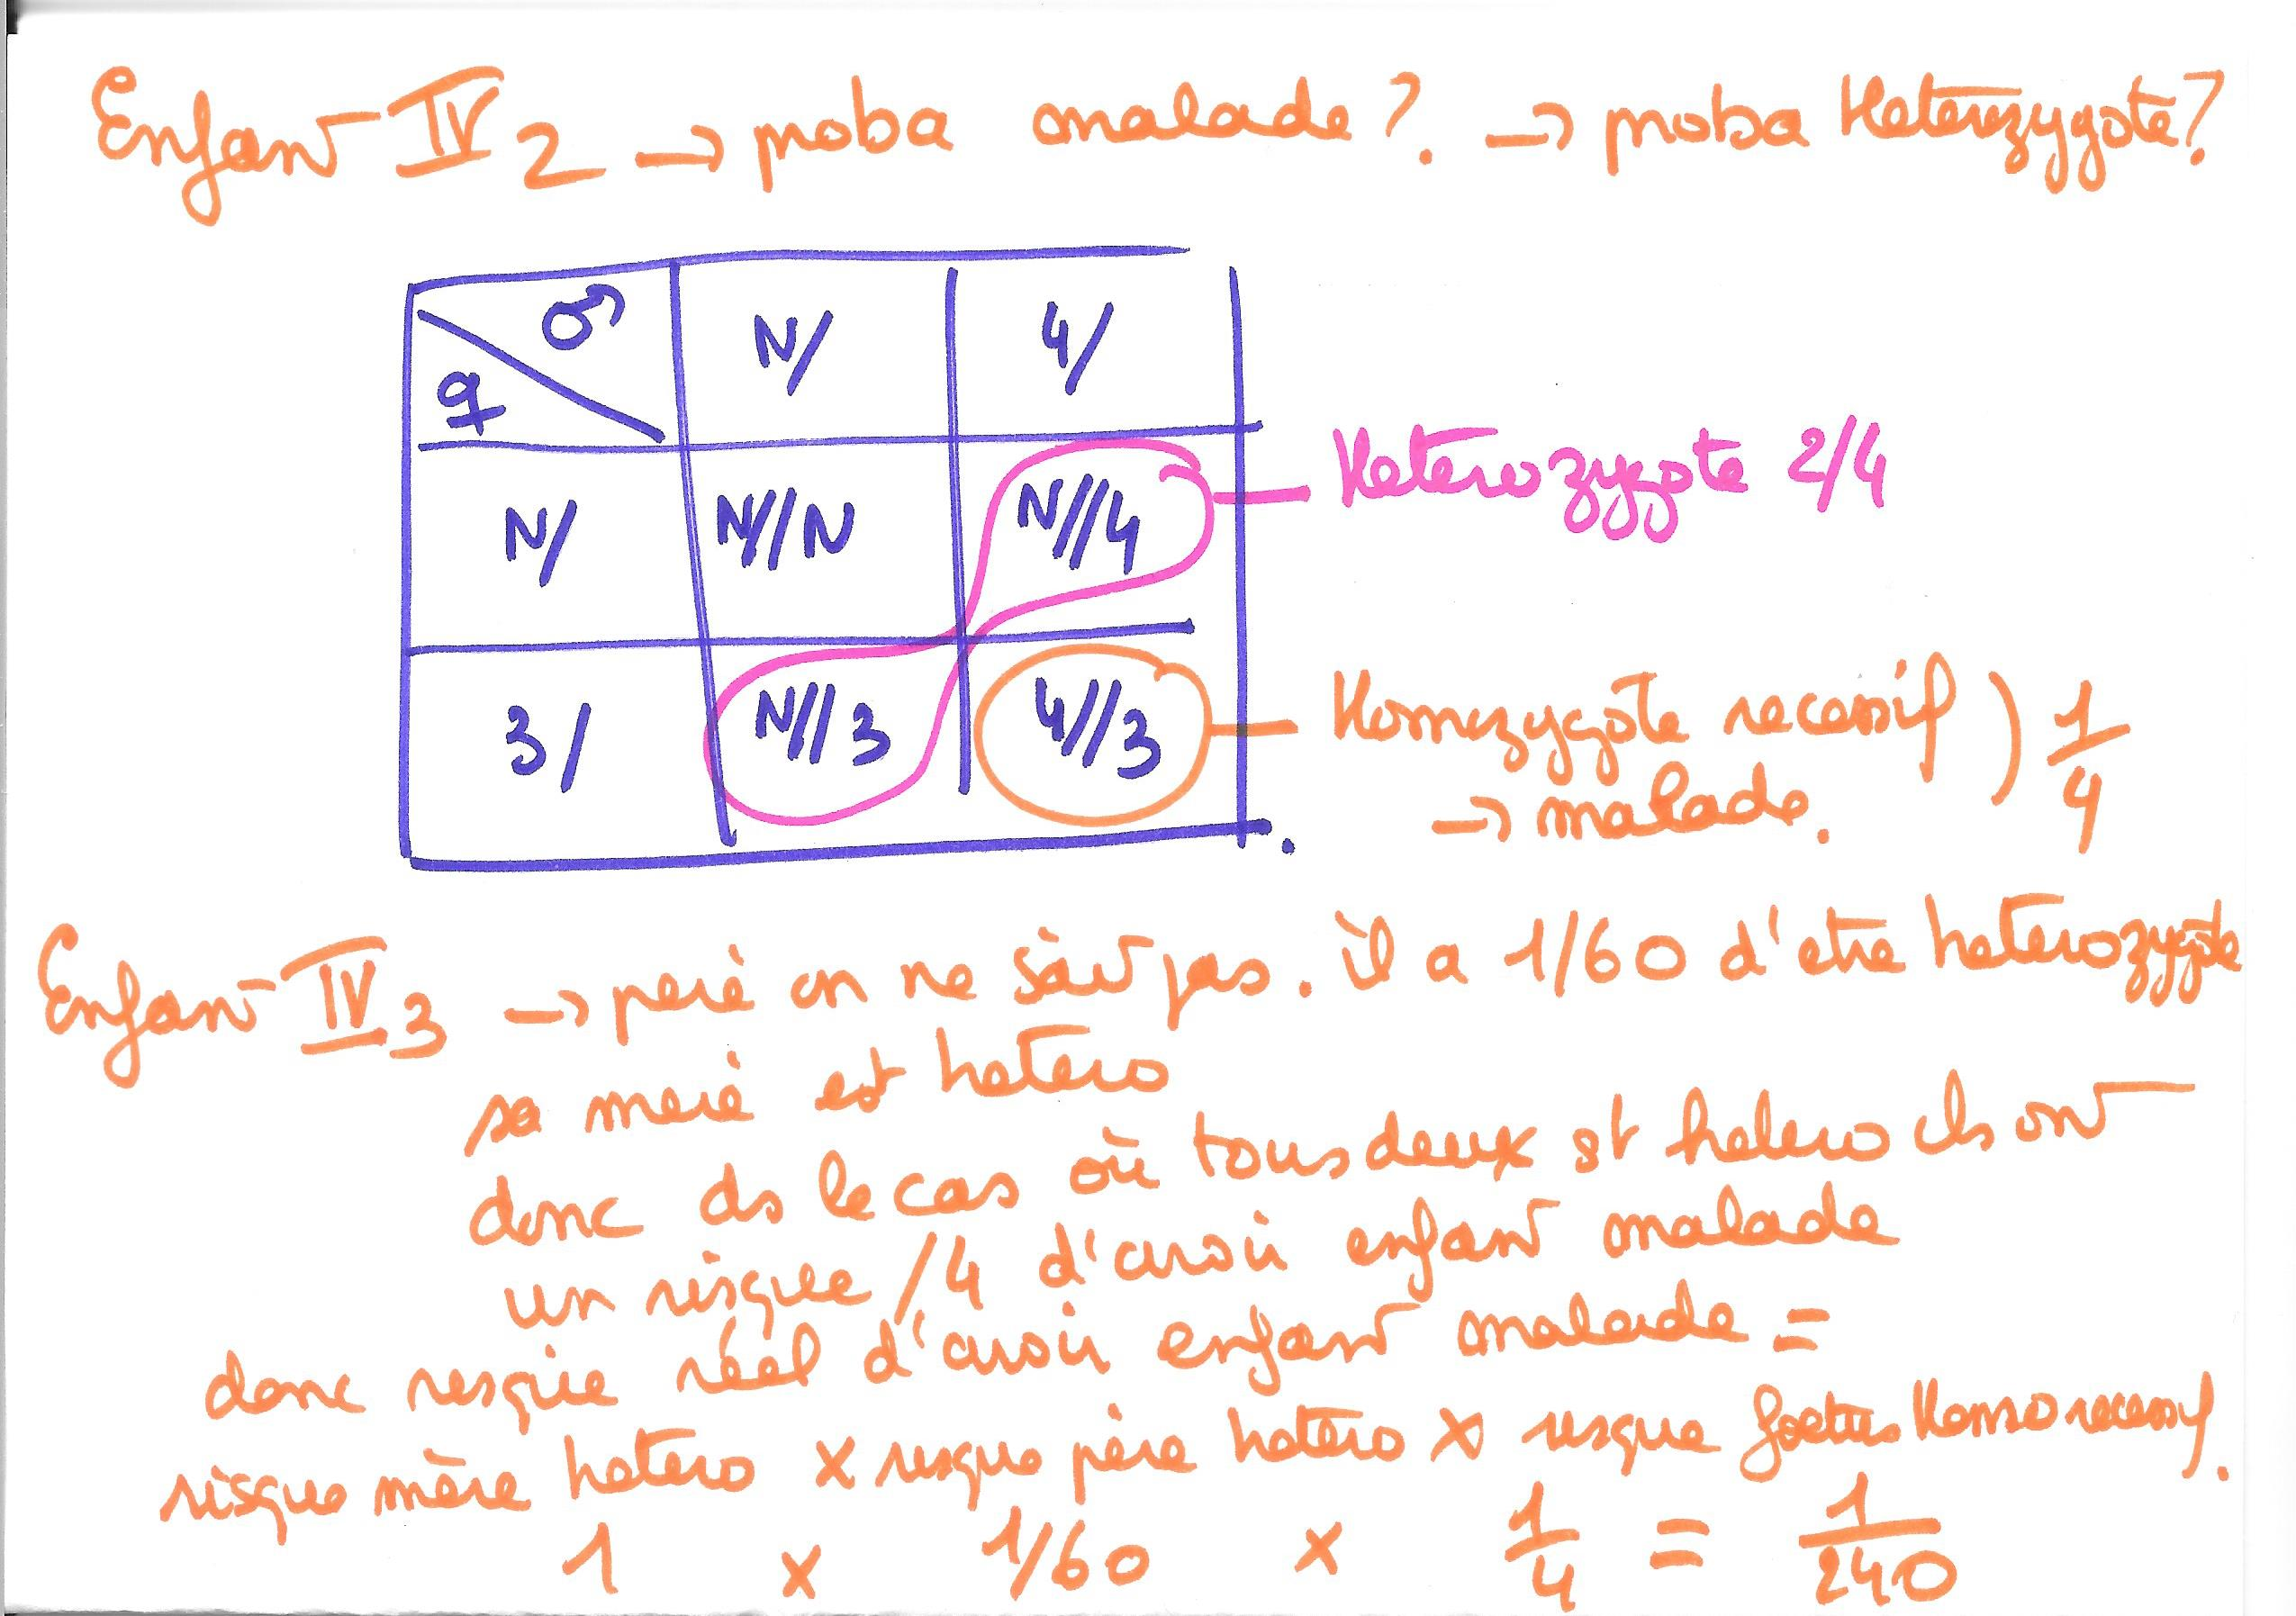 Enfant IV 2 → proba malade? → proba Heterozygote?
♂ N/ 4/
♀
N/ N//N N//4
Heterozygote 2/4
3/ N//3 4//3
Homozygote recessif ) 1/4
→ malade.
Enfant IV 3 → perè on ne sait pas. il a 1/60 d'etre heterozygote
sa merè est hetero
donc ds le cas où tous deux st hetero ils ont
un risque /4 d'avoir enfant malade
donc risque réel d'avoir enfant malade =
risque mère hetero x risque père hetero x risque foetus Homo recessif.
1 x 1/60 x 1/4 = 1/240